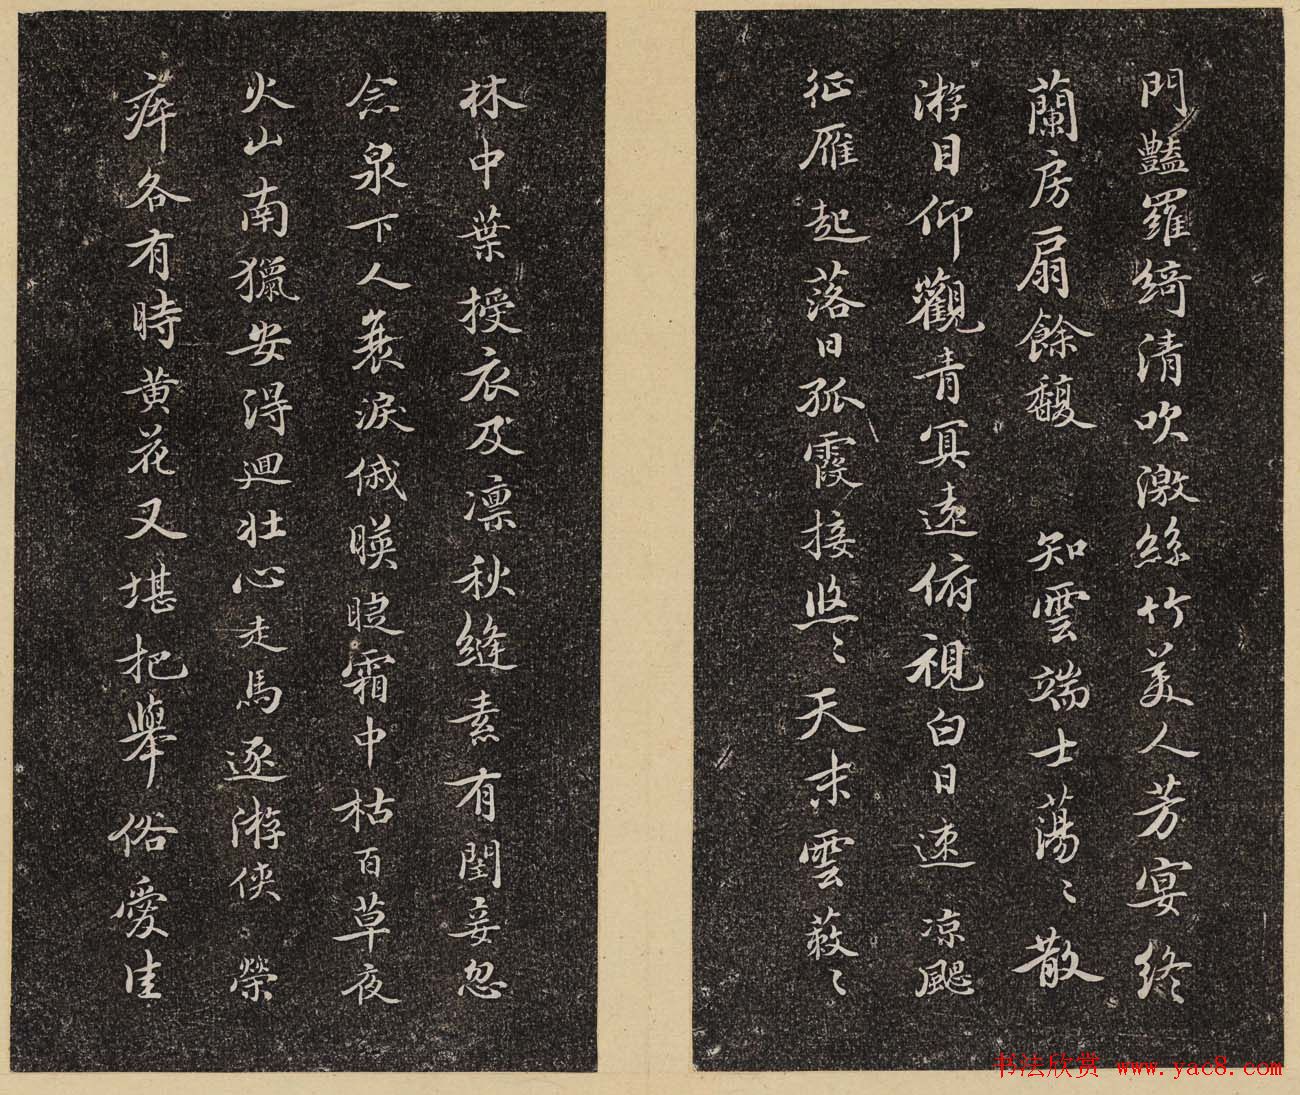 門豔羅綺清吹激絲竹美人芳宴終
蘭房扇餘馥 知雲端士蕩〻散
游目仰觀青冥遠俯視白日速 涼颸
征雁起落日孤霞接悠〻天末雲蔌〻
林中葉授衣及凛秋縫素有閨妾忽
念泉下人蓑淚俄暎睫霜中枯百草夜
火山南獵安得迴壯心走馬逐游俠 榮
瘁各有時黄花又堪把舉俗愛佳
书法欣赏 www.yac8.com